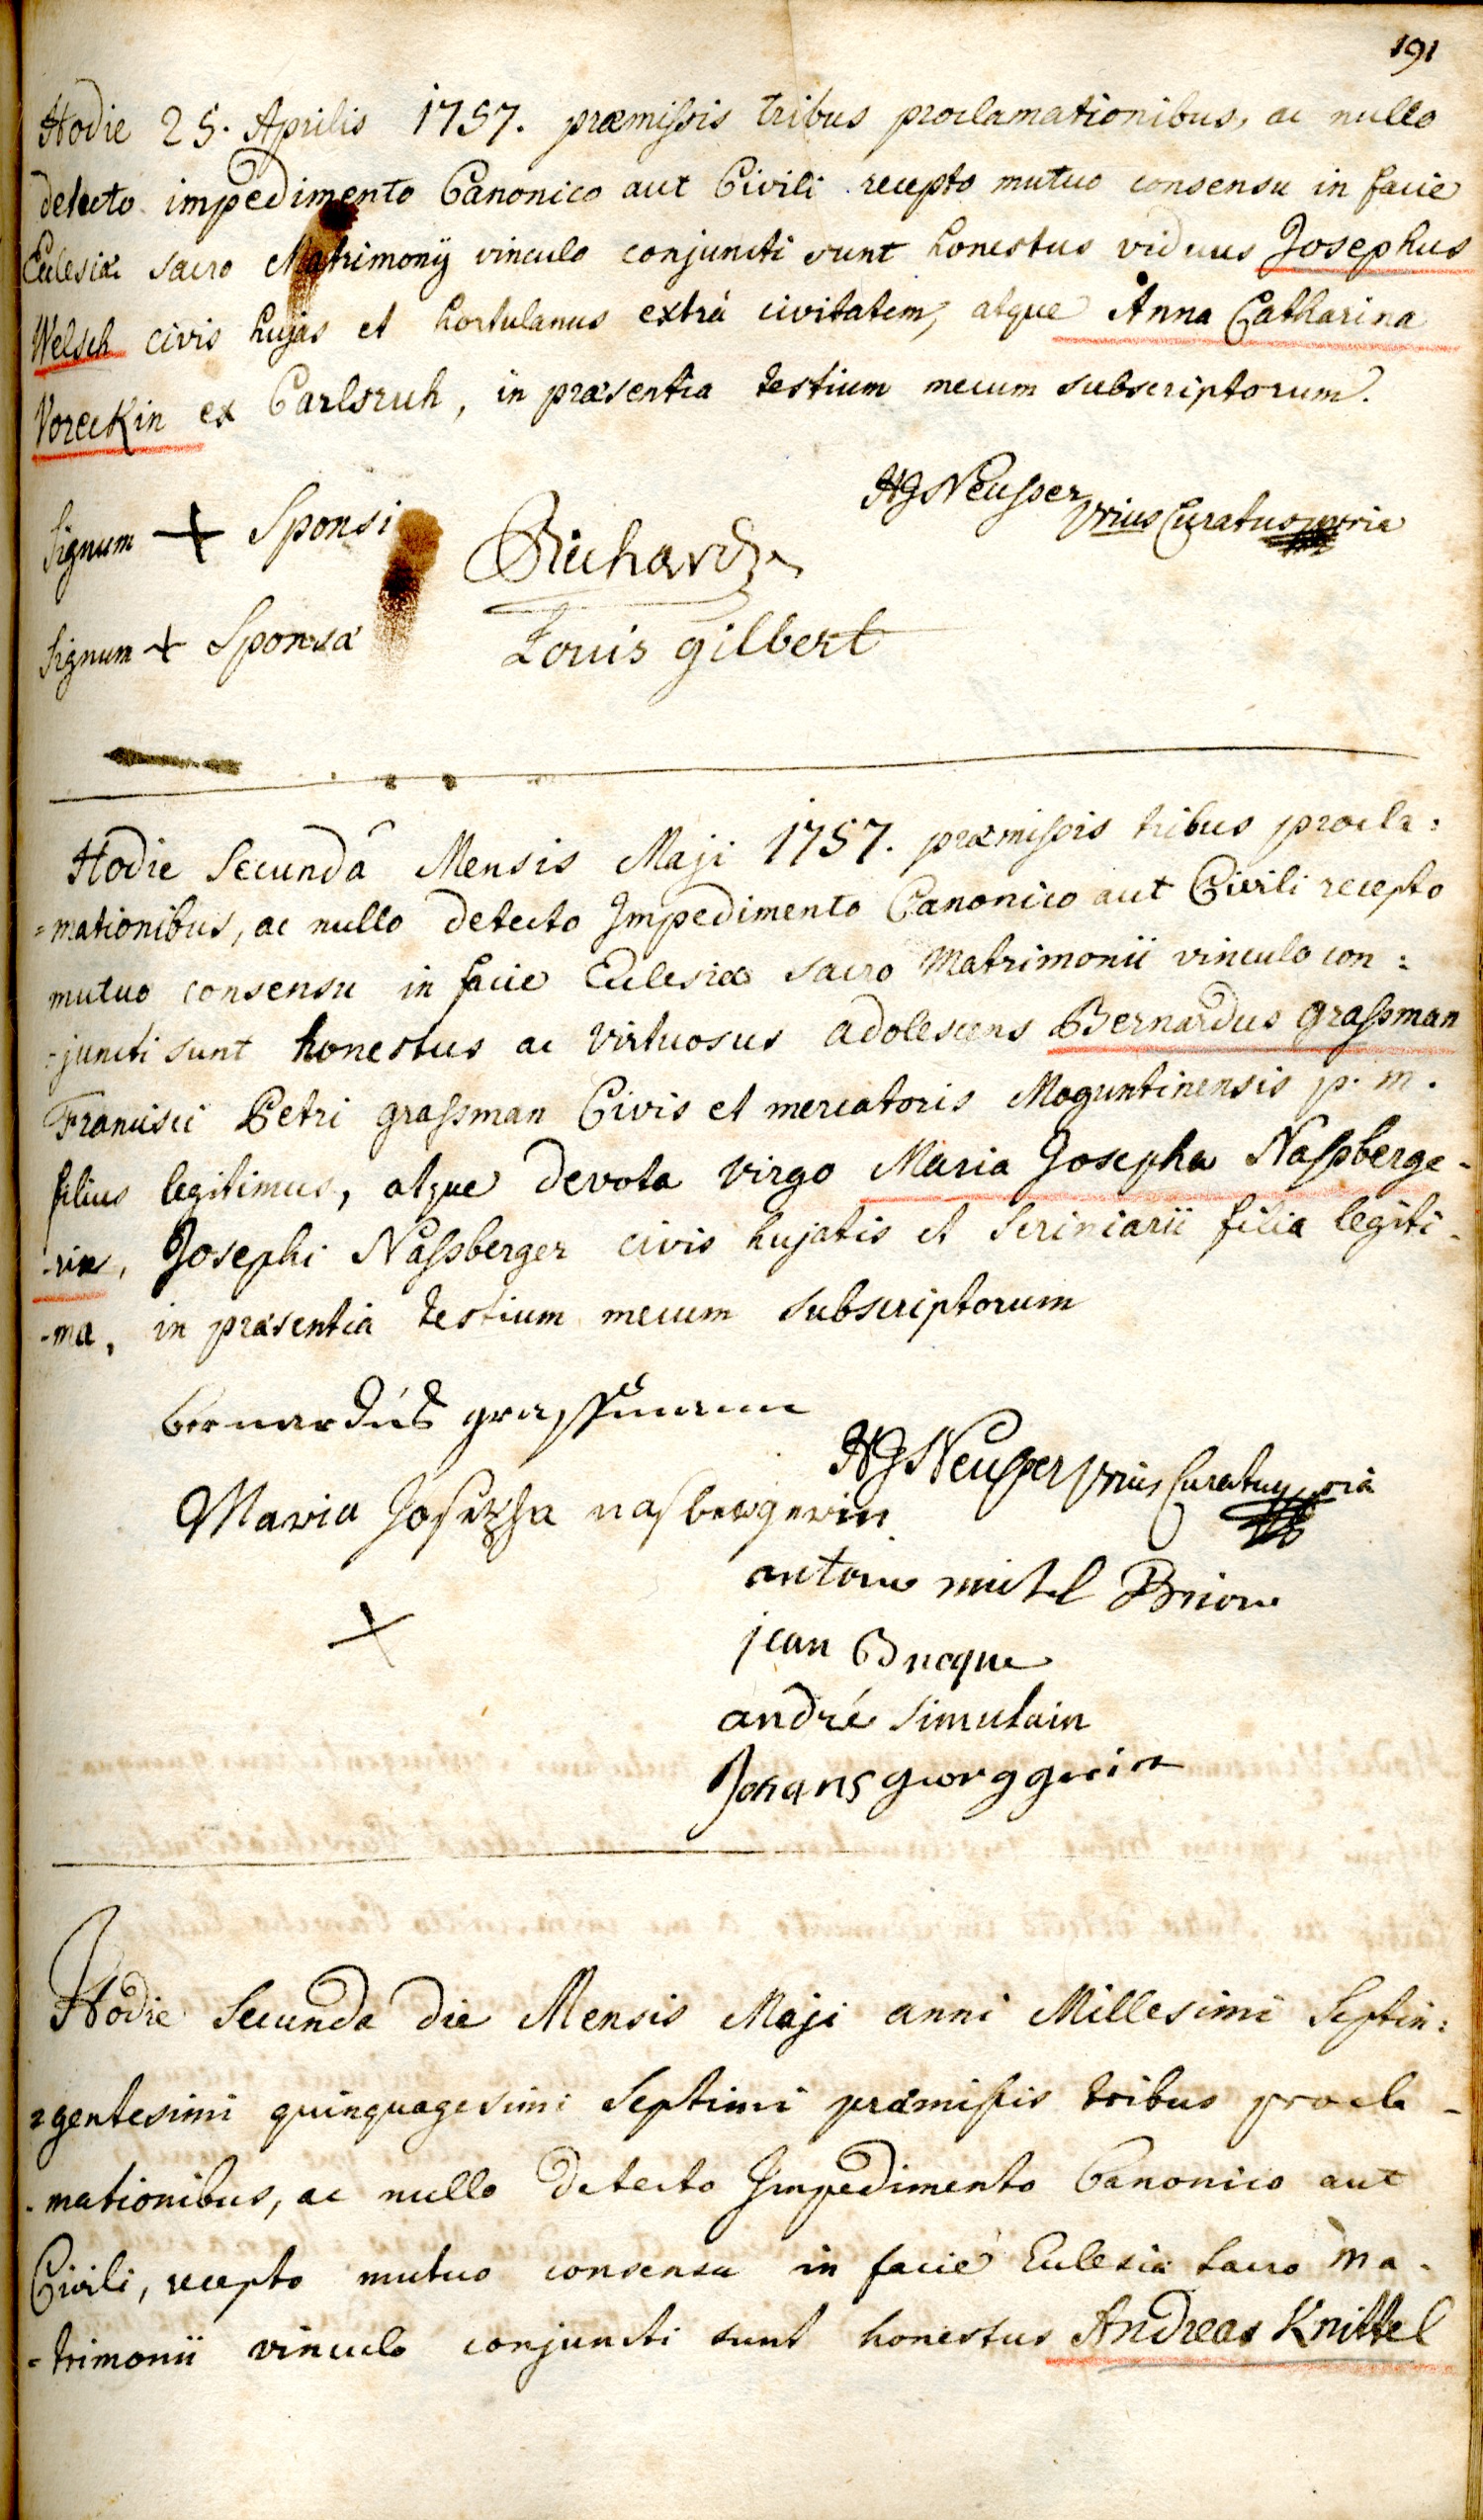 191
Hodie 25. Aprilis 1757. præmissis tribus proclamationibus, ac nullo
detecto impedimento Canonico aut Civili recepto mutuo consensu in facie
Ecclesiæ sacro Matrimonÿ vinculo conjuncti sunt honestus viduus Josephus
Welsch civis hujas et hortulanus extrà civitatem, atque Anna Catharina
Voreckin ex Carlsruh, in præsentia testium mecum subscriptorum.
HG Neusser Vrius Curatus mpria
Signum + Sponsi
Richard
Signum + Sponsæ
Louis gilbert
Hodie Secundâ Mensis Maji 1757. præmissis tribus procla:
=mationibus, ac nullo detecto Impedimento Canonico aut Civili recepto
mutuo consensu in facie Ecclesiæ sacro Matrimonii vinculo con:
-juncti sunt honestus ac virtuosus adolescens Bernardus grassman
Francisci Petri grassman Civis et mercatoris Moguntinensis p. m.
filius legitimus, atque devota virgo Maria Josepha Nassberge-
-rin, Josephi Nassberger civis hujatis et scriniarii filia legiti-
-ma, in præsentia testium mecum subscriptorum
Bernardus grassmann
HG Neusser Vrius Curatus mpria
Maria Josepha nasbergerin
+
antoine michel Brion
jean Bucque
andré simutain
Johans georg
Hodie Secunda die Mensis Maji anni Millesimi Septin:
=gentesimi quinquagesimi Septimi præmissis tribus procla-
-mationibus, ac nullo detecto Impedimento Canonico aut
Civili, recepto mutuo consensu in facie Ecclesiæ sacro Ma-
-trimonii vinculo conjuncti sunt honestus Andreas Knittel